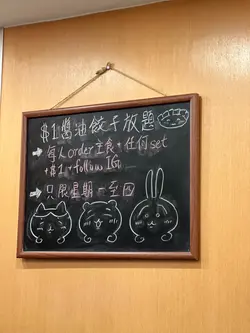 $1醬油餃子放題
→ 每人order主食+任何set
+$1+follow IG
→ 只限星期一至四